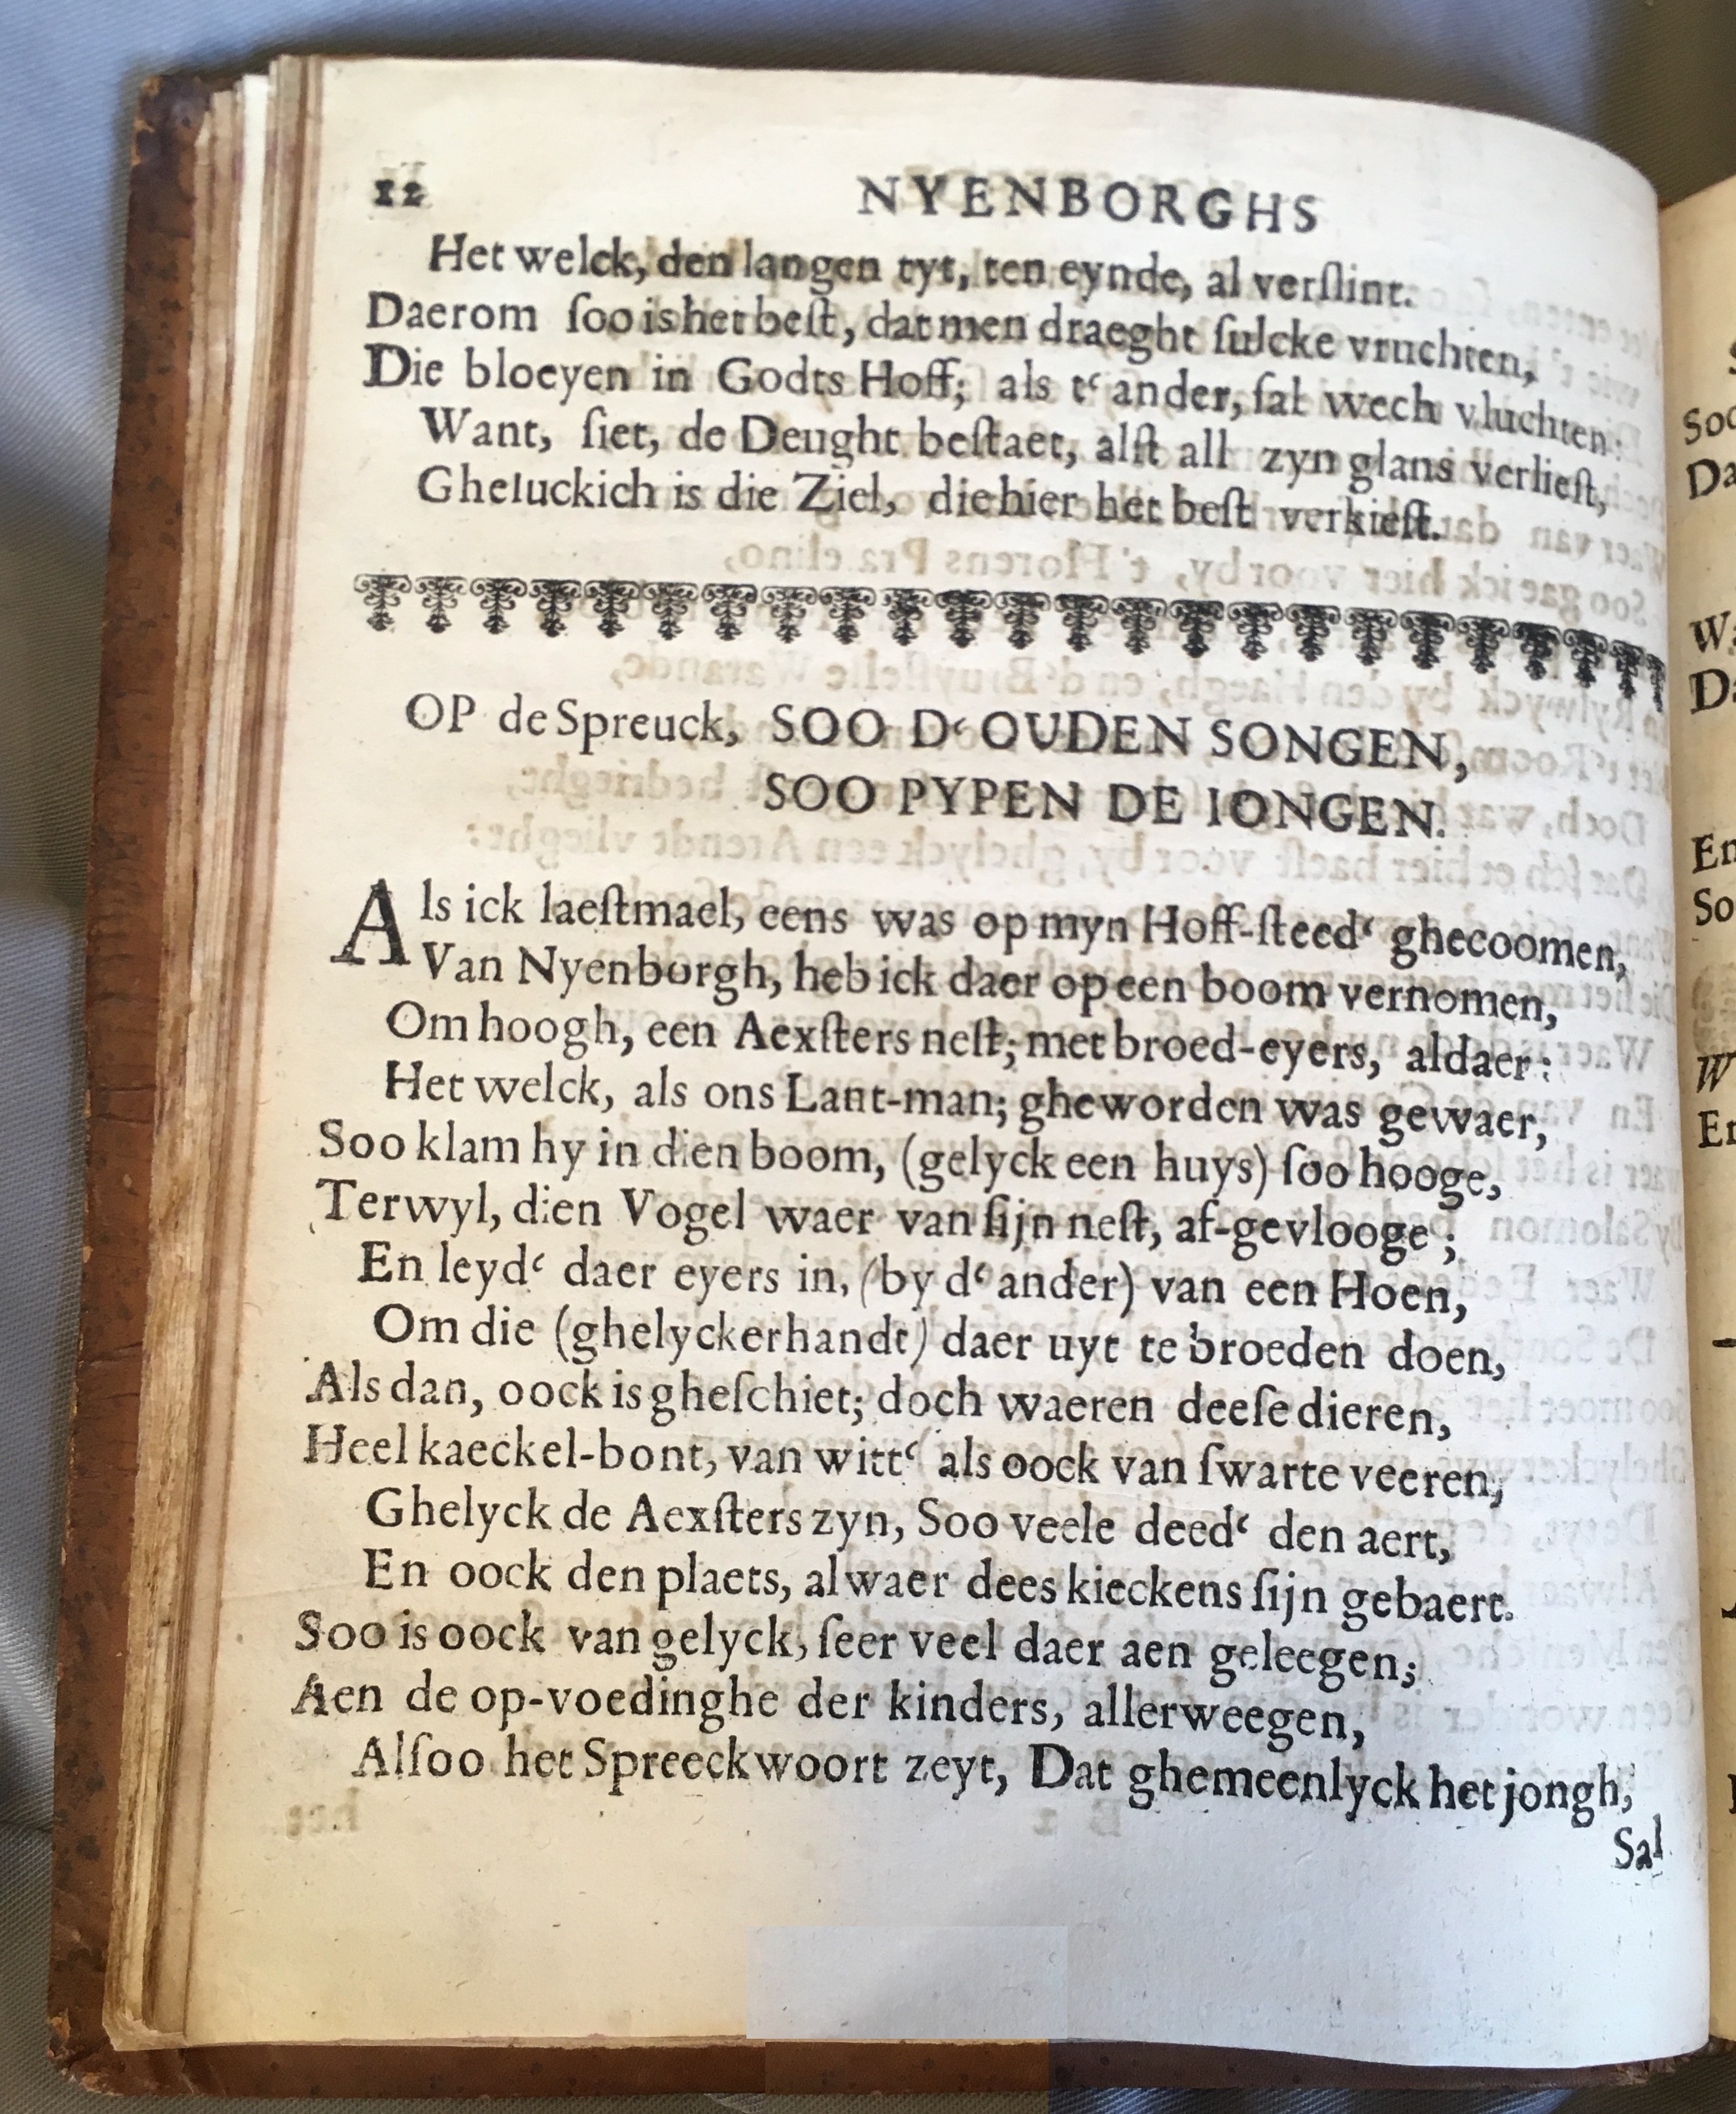 12 NYENBORGHS
Het welck, den langen tyt, ten eynde, al verſlint.
Daerom ſoo is het beſt, dat men draeght ſulcke vruchten,
Die bloeyen in Godts Hoff; als t‘ ander, ſal wech vluchten:
Want, ſiet, de Deught beſtaet, alſt all zyn glans verlieſt,
Gheluckich is die Ziel, die hier het beſt verkieſt.
OP de Spreuck, SOO D‘ OUDEN SONGEN,
SOO PYPEN DE IONGEN.
Als ick laeſtmael, eens was op myn Hoff-ſteed‘ ghecoomen,
Van Nyenborgh, heb ick daer op een boom vernomen,
Om hoogh, een Aexſters neſt; met broed-eyers, aldaer:
Het welck, als ons Lant-man; gheworden was gewaer,
Soo klam hy in dien boom, (gelyck een huys) ſoo hooge,
Terwyl, dien Vogel waer van ſijn neſt, af-gevlooge;
En leyd‘ daer eyers in, (by d‘ ander) van een Hoen,
Om die (ghelyckerhandt) daer uyt te broeden doen,
Als dan, oock is gheſchiet; doch waeren deeſe dieren,
Heel kaeckel-bont, van witt‘ als oock van ſwarte veeren,
Ghelyck de Aexſters zyn, Soo veele deed‘ den aert,
En oock den plaets, alwaer dees kieckens ſijn gebaert.
Soo is oock van gelyck, ſeer veel daer aen geleegen;
Aen de op-voedinghe der kinders, allerweegen,
Alſoo het Spreeckwoort zeyt, Dat ghemeenlyck het jongh,
Sal